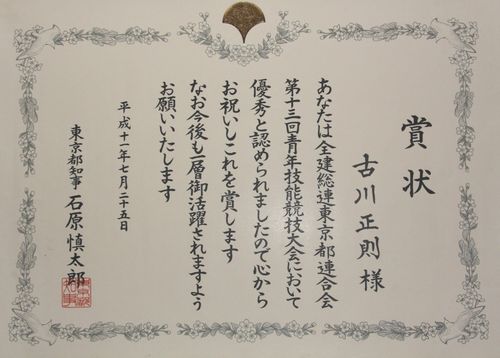 賞状
古川正則様
あなたは全建総連東京都連合会
第十三回青年技能競技大会において
優秀と認められましたので心から
お祝いしこれを賞します
なお今後も一層御活躍されますよう
お願いいたします
平成十一年七月二十五日
東京都知事 石原慎太郎